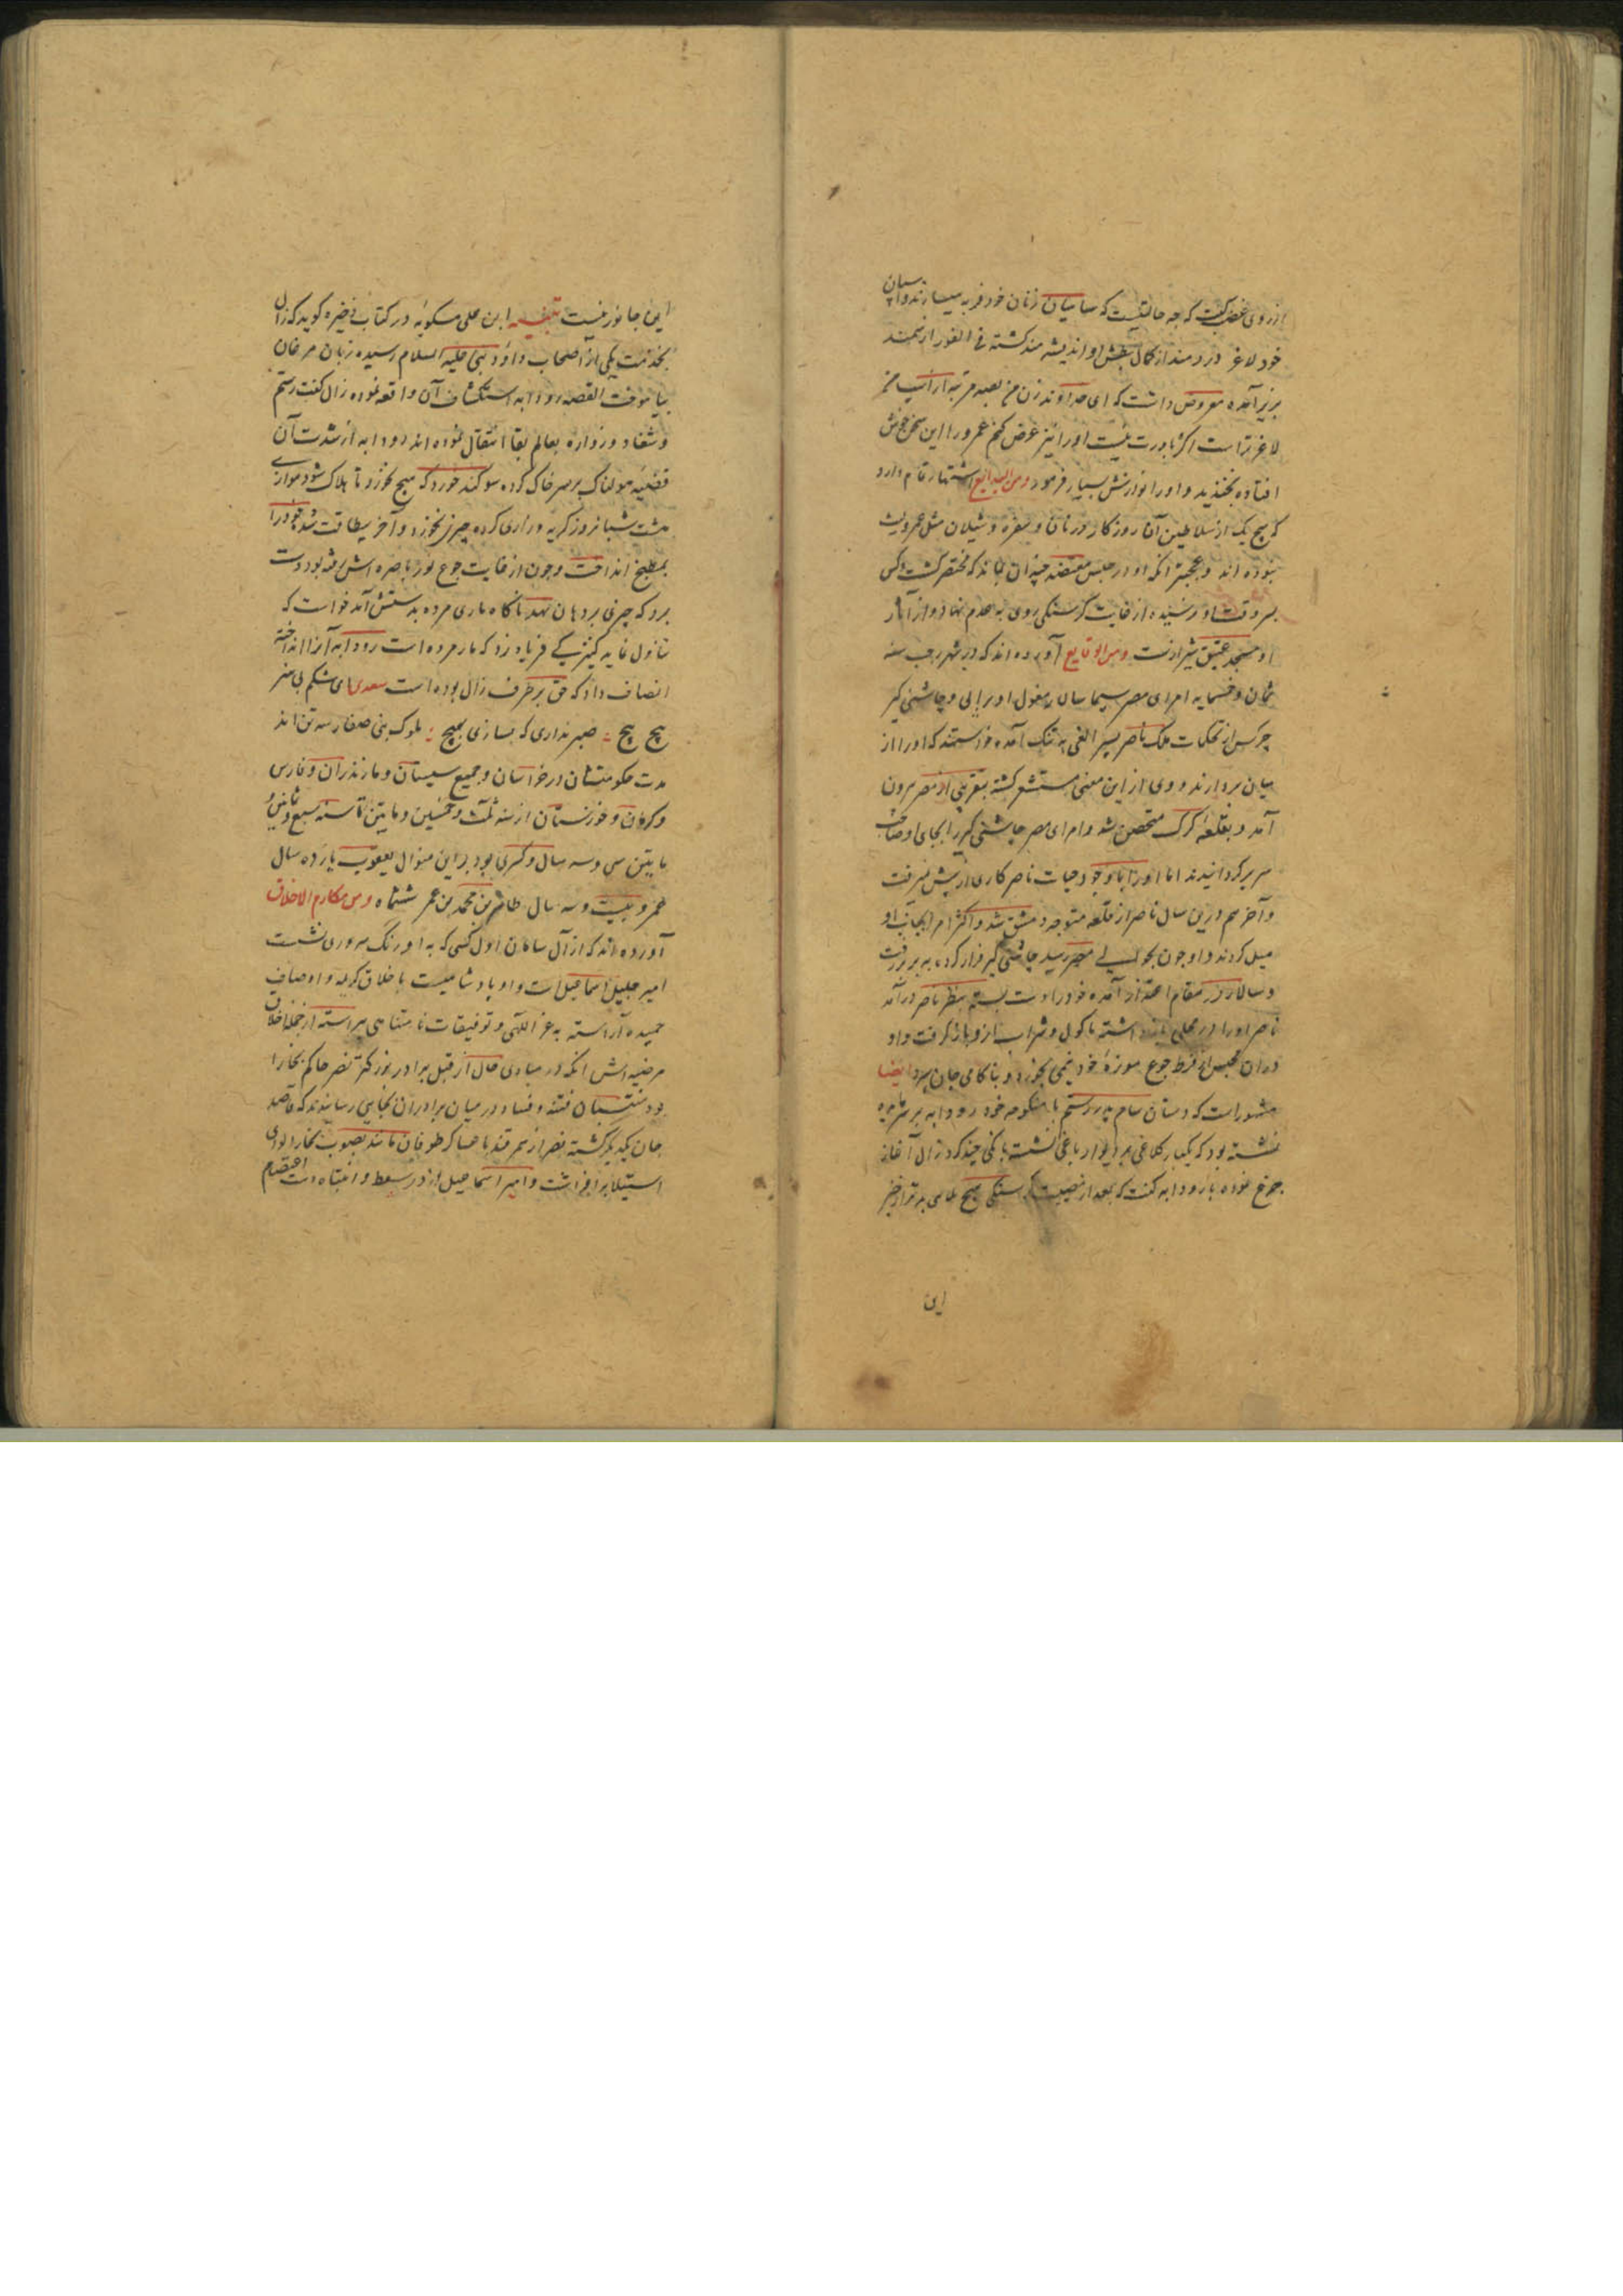 از روی غضب گفت که چه حالتیست که سپاهیان زنان خود فربه میسازند و اسپان
خود لاغر دردمند از کمال بطش او اندیشه مند کشته فی الفور از سمند
بزیر آمده معروض داشت که ای خداوند زن من بصد مرتبه از اسپ من
لاغرتر است اکر باورت نیست او را نیز عرض کنم عمرو را این سخن خوش
افتاده بخندید و او را نوازش بسیار فرمود ومن البدایع اشتهار تمام دارد
که هیچ یک از سلاطین آن روزکار در نان و سفره و شیلان مثل عمرو لیث
نبوده اند و عجبتر آنکه او در حبس معتضد چندان بماند که مختصر کشت و کس
بسر وقت او نرسیده از غایت کرسنکی روی به عدم نهاد و از آثار
او مسجد عتیق شیرازست ومن الوقایع آورده اند که در شهر رجب سنه
ثمان و خمسمایه امرای مصر سیما سالار مغول اویرایی و چاشنی کیر
چرکس از تحکمات ملک ناصر پسر الفی به تنک آمده خواستند که او را از
میان بردارند و وی از این معنی مستشعر کشته بتقریبی از مصر بیرون
آمد و بقلعه کرک متحصن شد و امرای مصر چاشنی کیر را بجای او صاحب
سریر کردانیدند اما او را با وجود حیات ناصر کاری از پیش نمیرفت
و آخر هم درین سال ناصر از قلعه متوجه دمشق شد و اکثر امرا بجانب او
میل کردند و او چون بحوالی مصر رسید چاشنی کیر فرار کرده به بر بر رفت
و سالار در مقام اعتذار آمده خود را دست بسته بنظر ناصر درآمد
ناصر او را در محلی باز داشته ماکول و مشراب از و باز کرفت و او
در آن محبس از فرط جوع موزهٔ خود نیمی بخورد و بناکامی جان سپرد ایضا
مشهور است که دستان سام پدر رستم با منکوحه خود رودابه بر سر مایده
نشسته بود که یکبار کلاغی بر دیوار باغی نشسته بانکی چند کرد زال آغاز
جزع نموده با رودابه کفت که بعد از مصیبت کرسنکی هیچ المی بدتر از خبر
این
این جانور نیست تنبیه ابن علی مسکویه در کتاب ذخیره کوید که زال
بخدمت یکی از اصحاب داود نبی علیه السلام رسیده زبان مرغان
بیاموخت القصه رودابه استکشاف آن واقعه نموده زال کفت رستم
و شغاد و زواره بعالم بقا انتقال نموده اند رودابه از شدت آن
قضیه هولناک بر سر خاک کرده سوکند خورد که هیچ نخورد تا هلاک شود موازی
هشت شبانروز کریه و زاری کرده چیزی نخورد و آخر بیطاقت شد خود را
بمطبخ انداخت و چون از غایت جوع نور باصره اش رفته بود دست
برد که چیزی بر دهان نهد ناکاه ماری مرده بدستش آمد خواست که
تناول نماید کنیزکی فریاد زد که مار مرده است رودابه آنرا انداخته
انصاف داد که حق بر طرف زال بوده است سعدی ای شکم بی هنر
پیچ پیچ : صبر نداری که بسازی بهیچ : ملوک بنی صفار سه تن اند
مدت حکومتشان در خراسان و جمیع سیستان و مازندران و فارس
و کرمان و خوزستان از سنه ثلث و خمسین و مایتین تا سنه سبع و ثمانین و
مایتین سی و سه سال و کسری بود بر این منوال یعقوب یازده سال
عمرو بیست و سه سال طاهر بن محمد بن عمر ششماه ومن مکارم الاخلاق
آورده اند که از آل سامان اول کسی که به اورنک سروری نشست
امیر جلیل اسماعیل است و او پادشاهیست باخلاق کریمه و اوصاف
حمیده آراسته به عز اللهی و توفیقات نامتناهی پیراسته از جمله اخلاق
مرضیه اش آنکه در مبادی حال از قبل برادر بزرکتر نصر حاکم بخارا
بود منتسبان فتنه و فساد در میان برادران بجایی رسانیدند که قاصد
جان یکدیکر کشته نصر از سمرقند با عساکر طوفان مانند بصوب بخارا لوای
استیلا برافراشت و امیر اسماعیل از در سعط و انتباه دست اعتصام